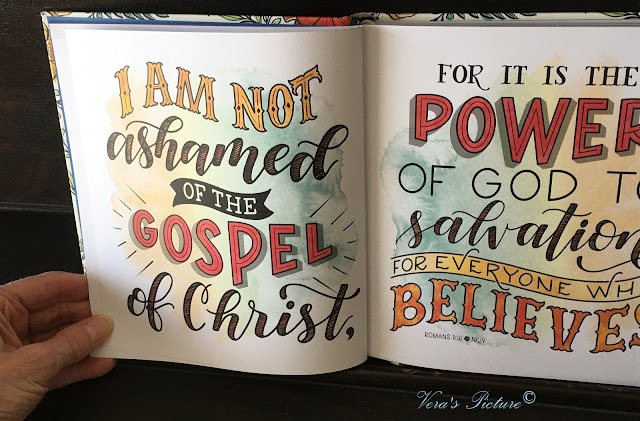 I AM NOT
ashamed
OF THE
GOSPEL
of Christ,
FOR IT IS THE
POWER
OF GOD TO
salvation
FOR EVERYONE WH
BELIEVES
ROMANS 1:16 NKJV
Vera's Picture©